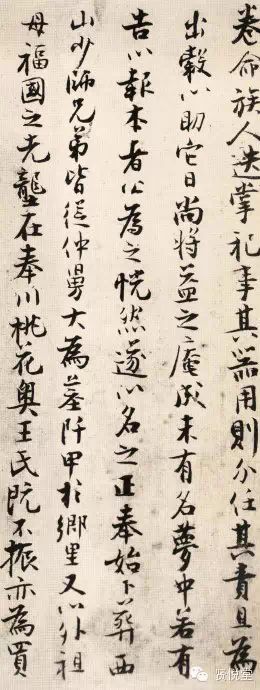 卷命族人迭掌祀事其器用則分任其責且為
出穀以助它日尚將益之庵成未有名夢中若有
告以報本者公為之恍然遂以名之正奉始卜葬西
山少師兄弟皆從仲舅大為墓阡甲於鄉里又以外祖
母福國之先壟在奉川桃花奧王氏既不振亦為買
贤悦堂